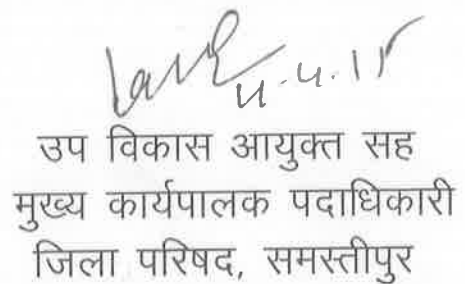 उप विकास आयुक्त सह
मुख्य कार्यपालक पदाधिकारी
जिला परिषद, समस्तीपुर